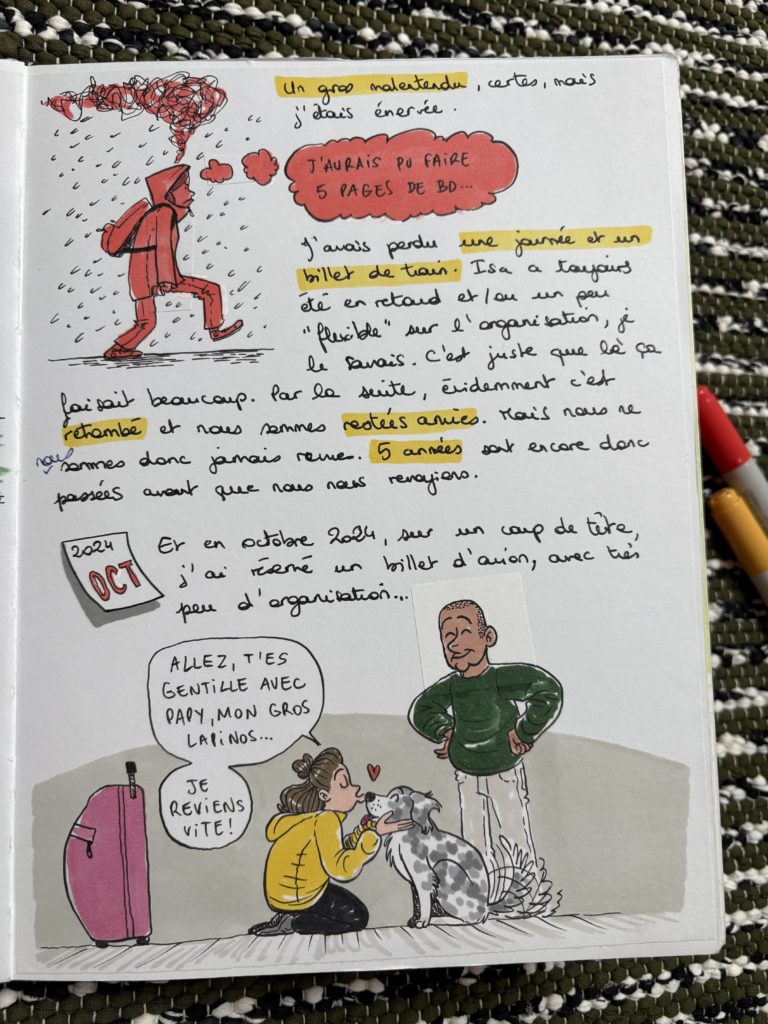 Un gros malentendu, certes, mais
j'étais énervée.
J'AURAIS PU FAIRE
5 PAGES DE BD...
J'avais perdu une journée et un
billet de train. Isa a toujours
été en retard et/ou un peu
"flexible" sur l'organisation, je
le savais. C'est juste que là ça
faisait beaucoup. Par la suite, évidemment c'est
retombé et nous sommes restées amies. Mais nous ne
nous sommes donc jamais revue. 5 années sont encore donc
passées avant que nous nous revoyions.
2024
OCT
Et en octobre 2024, sur un coup de tête,
j'ai réservé un billet d'avion, avec très
peu d'organisation...
ALLEZ, T'ES
GENTILLE AVEC
PAPY, MON GROS
LAPINOS...
JE
REVIENS
VITE!